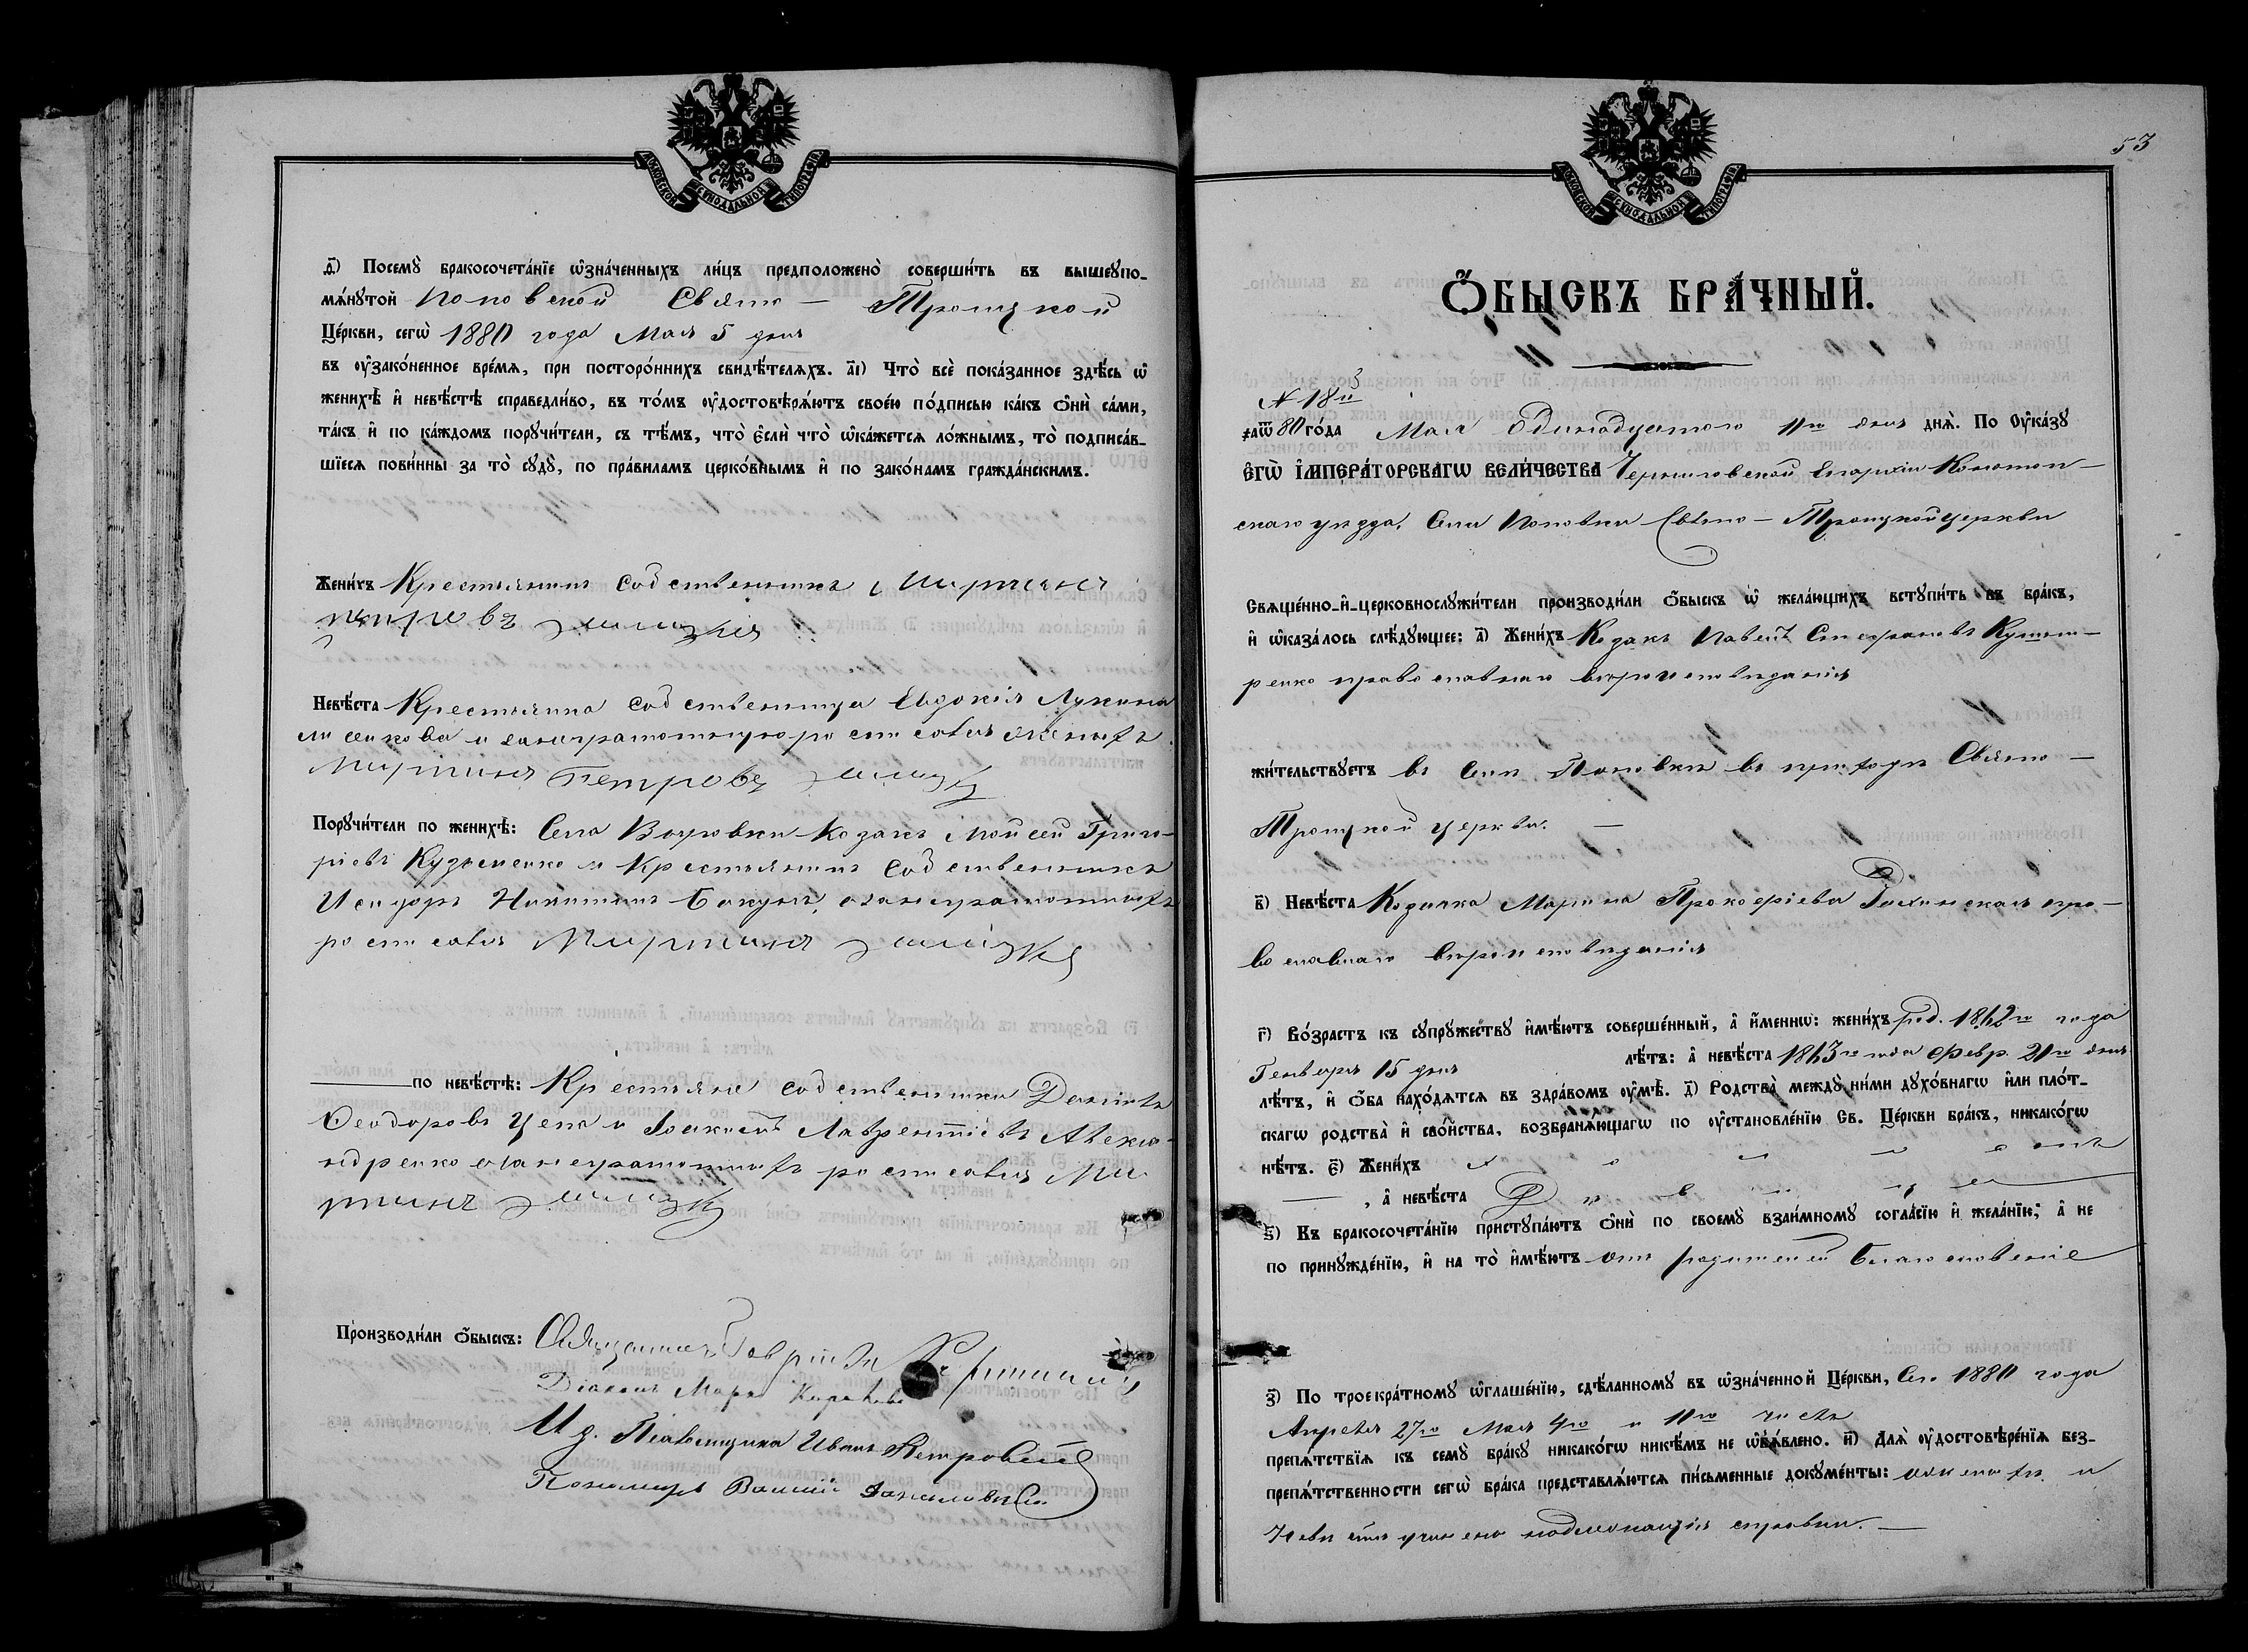 МОСКОВСКОЙ СѴНОДАЛЬНОЙ ТИПОГРАФІИ
і҃) Посемꙋ̀ бракосочета́нїе ѡ҆зна́ченныхъ ли́цъ предположено̀ соверши́ть въ вышеꙋпо-
мѧ́нꙋтой Поповской Свято — Троицкой
Це́ркви, сегѡ̀ 1880 года Мая 5 дня
въ ᲂу҆зако́ненное вре́мѧ, при посторо́ннихъ свидѣ́телѧхъ. а҃і) Что̀ всѐ пока́занное здѣ́сь ѡ҆
женихѣ̀ и҆ невѣ́стѣ справедли́во, въ то́мъ ᲂу҆достовѣрѧ́ютъ свое́ю по́дписью ка́къ ѻ҆нѝ са́ми,
та́къ и҆ по ка́ждомъ порꙋчи́тели, съ тѣ́мъ, что̀ є҆слѝ что̀ ѡ҆ка́жетсѧ ло́жнымъ, то̀ подписа́в-
шїесѧ пови́нны за то̀ сꙋдꙋ̀, по пра́виламъ церко́внымъ и҆ по зако́намъ гражда́нскимъ.
Жени́хъ Крестьянинъ собственникъ Мартинъ
Петровъ
Невѣ́ста Крестьянка собственница Евдокія Лукина
а за неграмотную росписался женихъ
Мартинъ Петровъ
Порꙋчи́тели по женихѣ̀: Села Козакъ Мойсей Григо-
ріевъ Кузьменко и Крестьянинъ собственникъ
Исидоръ Никитинъ Бакунъ, а за неграмотныхъ
росписался Мартинъ
по невѣ́стѣ: Крестьяне собственники Даніилъ
Ѳеодоровъ Цепа и Іоакимъ Лаврентіевъ Алекса-
ндренко а за неграмотныхъ росписался Ма
ртинъ
Производи́ли ѻ҆́быскъ: Священникъ Гавріилъ
Діаконъ Марко
И д. Псаломщика Иванъ Петровскій
Пономарь Василій
МОСКОВСКОЙ СѴНОДАЛЬНОЙ ТИПОГРАФІИ
53
Ѻ҆́БЫСКЪ БРА́ЧНЫЙ.
№ 18
҂аѿ 80 го́да Мая Одинадцатого 11го дня днѧ̀. По Оу҆ка́зꙋ
є҆гѡ̀ і҆мпера́торскагѡ вели́чества Черниговской Епархіи Конотоп-
скаго уѣзда, Села Поповки Свято — Троицкой церкви
Свѧще́нно-и҆-церковнослꙋжи́тели производи́ли ѻ҆́быскъ ѡ҆ жела́ющихъ встꙋпи́ть въ бра́къ,
и҆ ѡ҆каза́лось слѣ́дꙋющее: а҃) Жени́хъ Козакъ Павелъ Стефановъ
ренко православнаго вѣроисповѣданія
жи́тельствꙋетъ въ селѣ Поповкѣ въ приходѣ Свято —
Троицкой церкви. —
в҃) Невѣ́ста Козачка Марина Прокофіева пра-
вославнаго вѣроисповѣданія
г҃) Во́зрастъ къ сꙋпрꙋ́жествꙋ и҆мѣ́ютъ соверше́нный, а҆ и҆́меннѡ: жени́хъ род. 1862го года
Генваря 15 дня лѣ́тъ: а҆ невѣ́ста 1863го года Февр. 21го дня
лѣ́тъ, и҆ ѻ҆́ба нахо́дѧтсѧ въ здра́вомъ ᲂу҆мѣ̀. д҃) Родства̀ междꙋ̀ ни́ми дꙋхо́внагѡ и҆лѝ пло́т-
скагѡ родства̀ и҆ сво́йства, возбранѧ́ющагѡ по ᲂу҆становле́нїю Св. Це́ркви бра́къ, никако́гѡ
нѣ́тъ. є҃) Жени́хъ холостъ
, а҆ невѣ́ста Дѣвица
ѕ҃) Къ бракосочета́нїю пристꙋпа́ютъ ѻ҆нѝ по своемꙋ̀ взаи́мномꙋ согла́сїю и҆ жела́нїю; а҆ не
по принꙋжде́нїю, и҆ на то̀ и҆мѣ́ютъ отъ родителей благословеніе
з҃) По троекра́тномꙋ ѡ҆глаше́нїю, сдѣ́ланномꙋ въ ѡ҆зна́ченной Це́ркви, сего 1880 года
Апреля 27го Мая 4го и 11го числъ
препѧ́тствїѧ къ семꙋ̀ бра́кꙋ никако́гѡ никѣ́мъ не ѡ҆б̾ѧ́влено. и҃) Длѧ̀ ᲂу҆достовѣре́нїѧ без-
препѧ́тственности сегѡ̀ бра́ка представлѧ́ютсѧ пи́сьменные докꙋме́нты: о женихѣ и
невѣстѣ учинено надлежащія справки. —